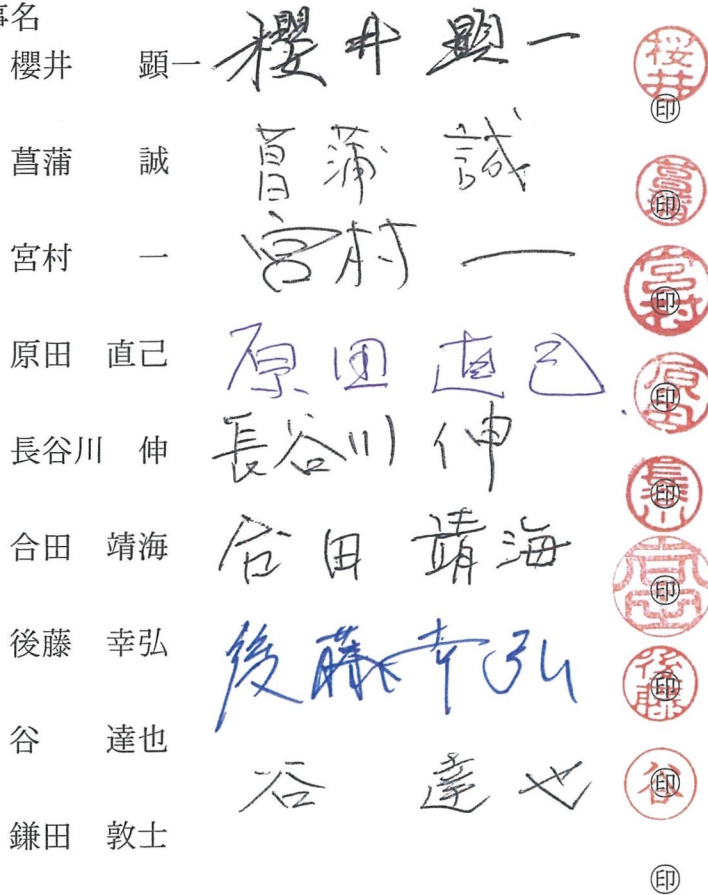 事名
櫻井 顕一 櫻井 顕一 桜井 ㊞
菖蒲 誠 菖蒲 誠 菖蒲 ㊞
宮村 一 宮村 一 宮村 ㊞
原田 直己 原田 直己 原田 ㊞
長谷川 伸 長谷川 伸 長谷川 ㊞
合田 靖海 合田 靖海 合田 ㊞
後藤 幸弘 後藤 幸弘 後藤 ㊞
谷 達也 谷 達也 谷 ㊞
鎌田 敦士 ㊞